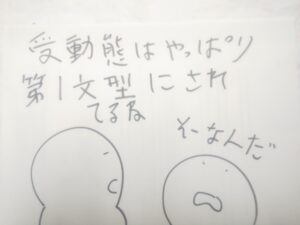 受動態はやっぱり
第1文型にされ
てるな
そーなんだ